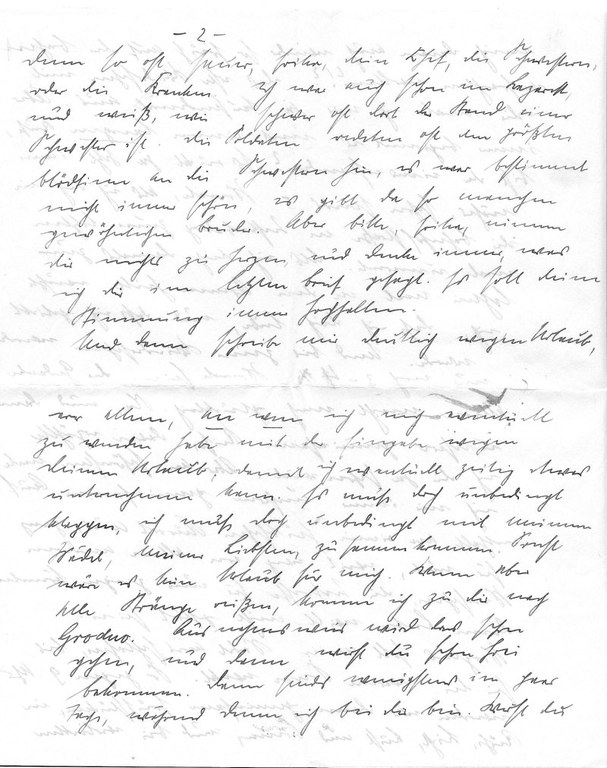 - 2 -
denn so oft sauer, heiter, dein Chef, die Schwestern,
oder die Kranken. Ich war auch schon im Lazarett,
und weiß, wie schwer oft dort der Stand einer
Schwester ist. Die Soldaten redeten oft den größten
Blödsinn an die Schwestern hin, es war bestimmt
nicht immer schön, es gibt da so manchen
gewöhnlichen Bruder. Aber bitte, nimm
dir nichts zu Herzen und denke immer, was
ich dir im letzten Brief gesagt. Es soll deine
Stimmung immer hochhalten.
Und dann schreibe mir deutlich wegen Urlaub,
vor allem, an wen ich mich eventuell
zu wenden habe mit der Eingabe wegen
Deinem Urlaub, damit ich eventuell zeitig etwas
unternehmen kann. Es muß doch unbedingt
klappen, ich muß doch unbedingt mit meinem
Mädel, meiner Liebsten, zusammenkommen. Sonst
wäre es kein Urlaub für mich. Wenn aber
alle Stränge reißen, komme ich zu dir nach
Grodno. Ausnahmsweise wird das schon
gehen, und dann wirst du schon frei
bekommen. Dann sinds wenigstens ein paar
Tage, während denen ich bei dir bin. Wirst du